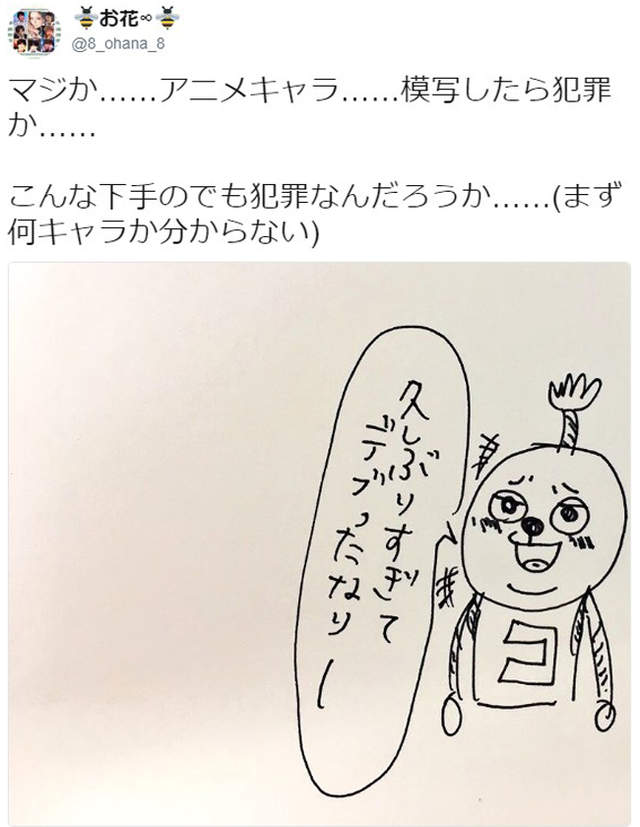 🐝お花∞🐝
@8_ohana_8
マジか……アニメキャラ……模写したら犯罪
か……
こんな下手のでも犯罪なんだろうか……(まず
何キャラか分からない)
久しぶりすぎて
デブったなりー
コ